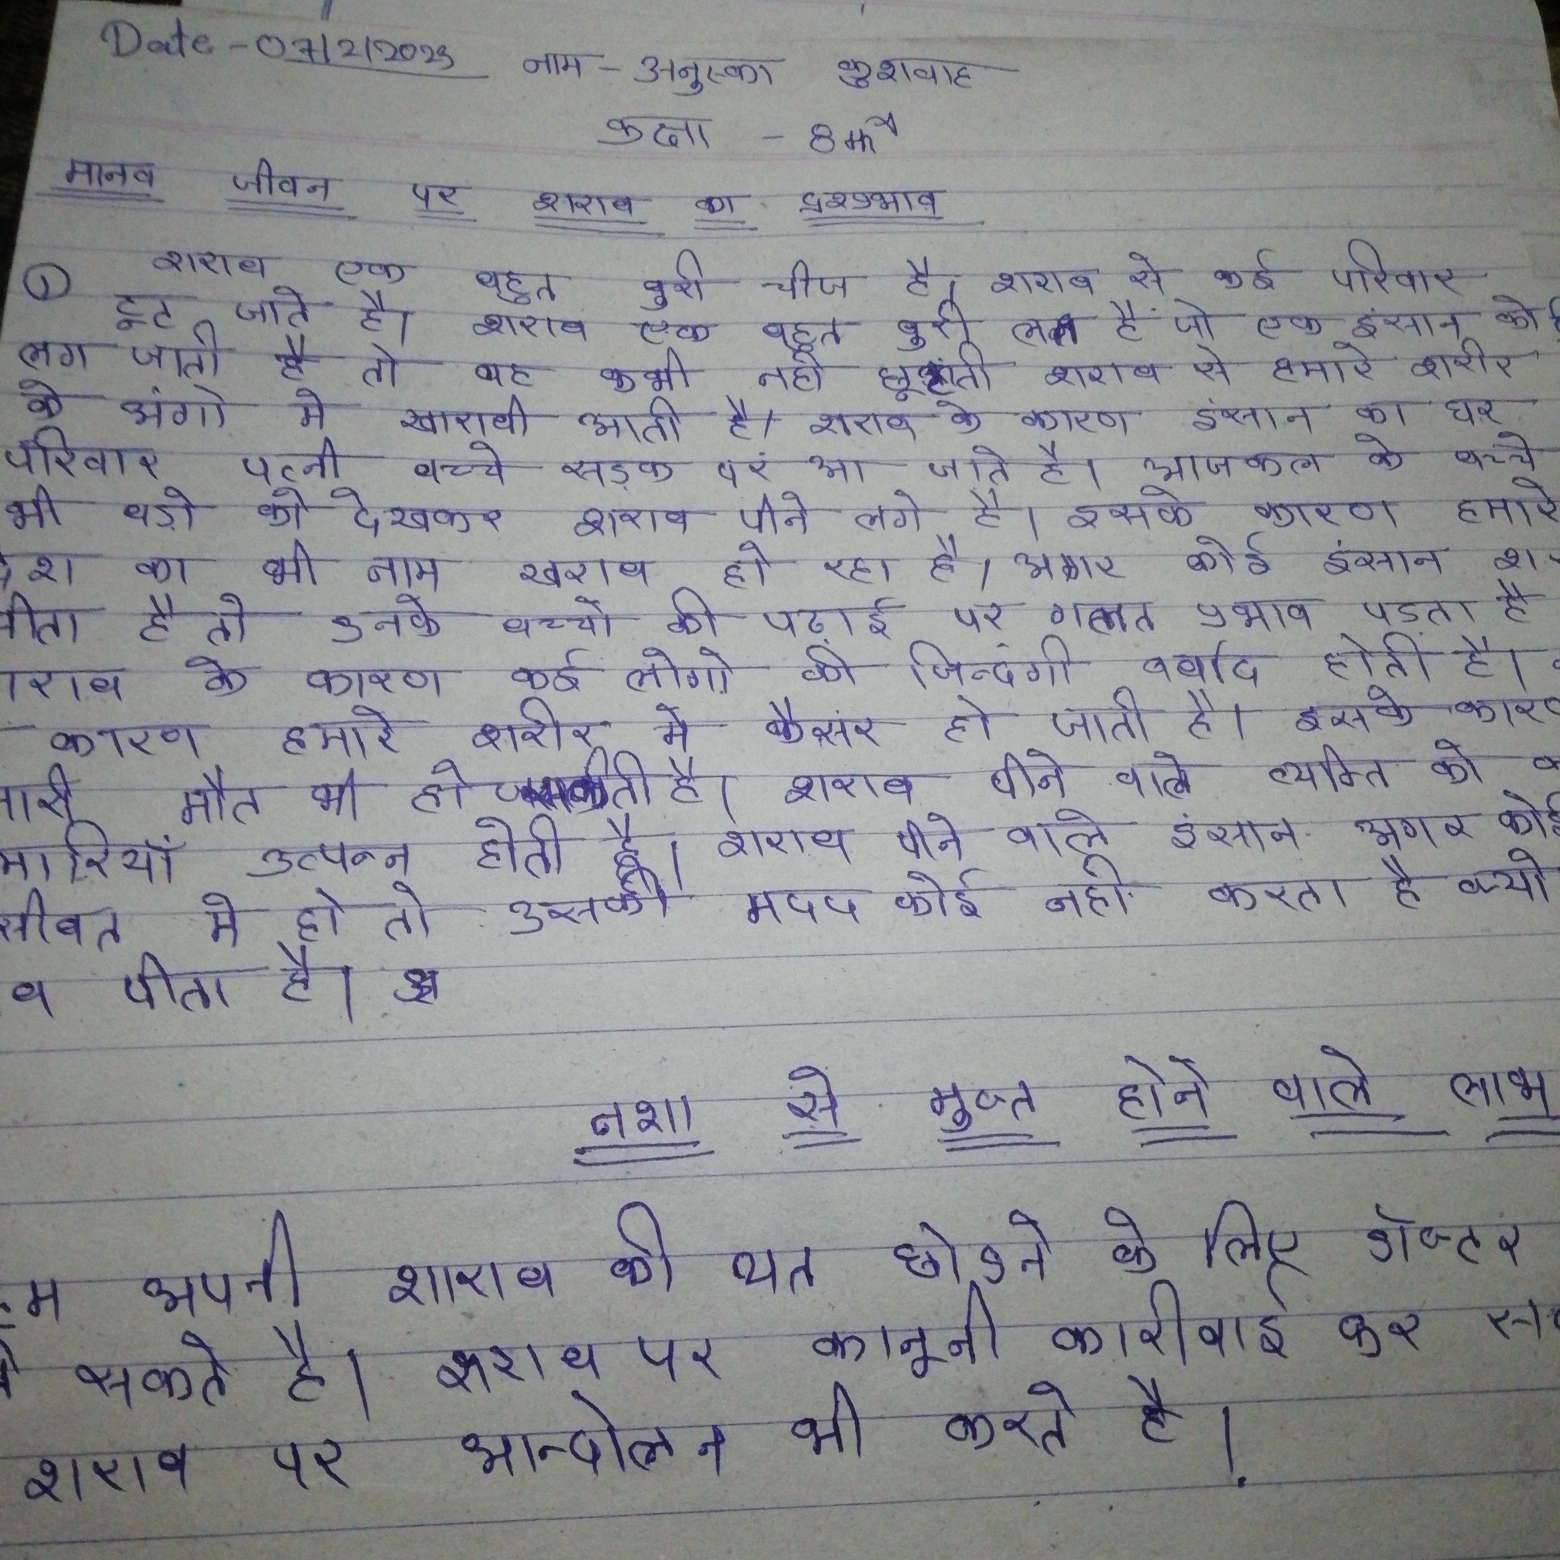 Date - 07/2/2023 नाम - अनुस्का कुशवाह
कक्षा - 8
मानव जीवन पर शराब का
① शराब एक बहुत बुरी चीज है। शराब से कई परिवार
टूट जाते है। शराब एक बहुत बुरी लत है जो एक इंसान को
लग जाती है तो यह कभी नही शराब से हमारे शरीर
के अंगो मे खाराबी आती है। शराब के कारण इंसान का घर
परिवार पत्नी बच्चे सड़क पर आ जाते है। आजकल के बच्चे
भी बड़ो को देखकर शराब पीने लगे है। इसके कारण हमारे
का भी नाम खराब हो रहा है। अगर कोई इंसान
है तो उनके बच्चो की पढ़ाई पर गलत प्रभाव पडता है
के कारण कई लोगो की जिन्दगी बर्बाद होती है।
कारण हमारे शरीर मे कैसंर हो जाती है। इसके
मौत भी हो है। शराब पीने वाले व्यक्ति को
उत्पन्न होती है। शराब पीने वाले इंसान अगर
मे हो तो उसकी मदद कोई नही करता है क्यो
पीता है।
नशा से मुक्त होने वाले लाभ
अपनी शाराब की छोडने के लिए डॅक्टर
सकते है। शराब पर कानूनी कारीवाई कर
शराब पर आन्दोलन भी करते है।